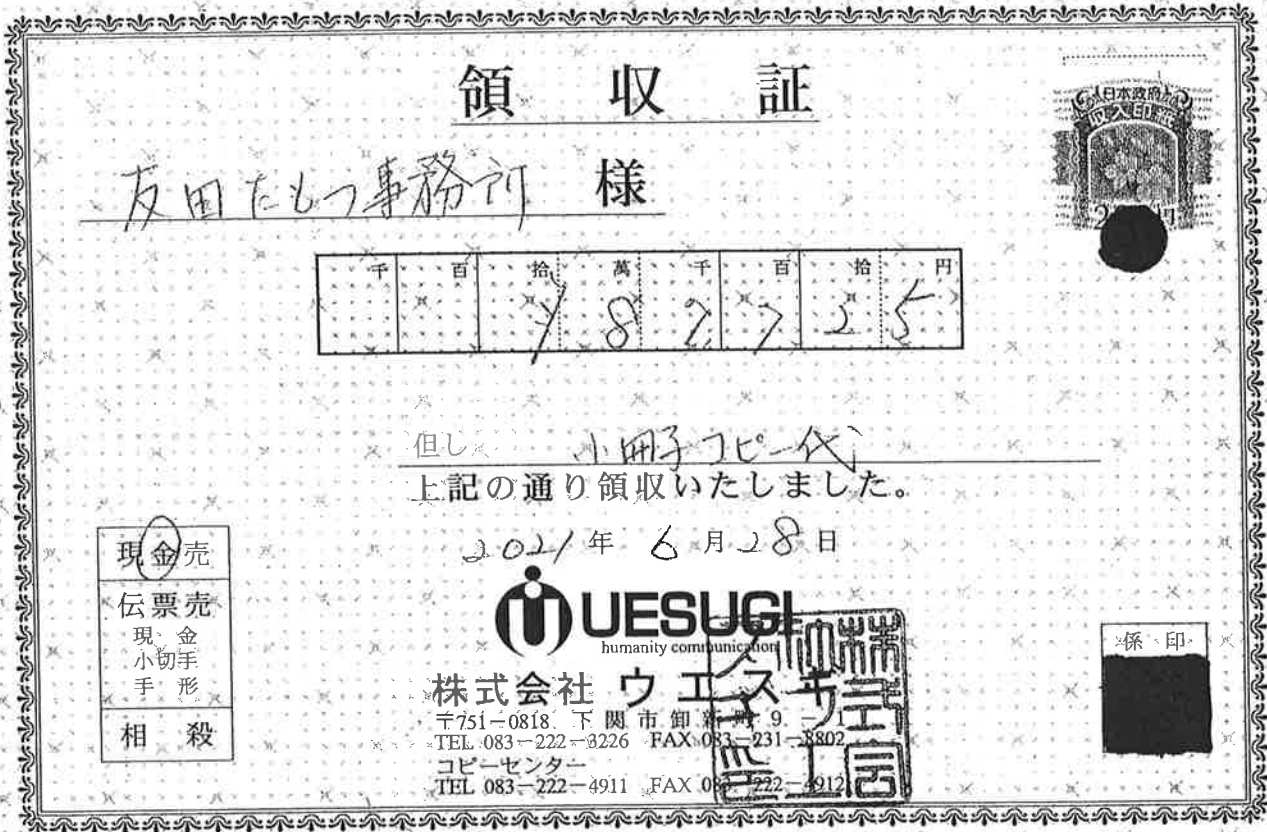 領収証
日本政府
収入印紙
友田たもつ事務所 様
千 百 拾 萬 千 百 拾 円
¥ 8 2 7 2 5
但し 小冊子コピー代
上記の通り領収いたしました。
2021年 6月28日
現金売
伝票売
現金
小切手
手形
相殺
UESUGI
humanity communication
株式会社 ウエスギ
〒751-0818 下関市卸新町9-
TEL 083-222-3226 FAX 083-231-8802
コピーセンター
TEL 083-222-4911 FAX 083-222-4912
係印